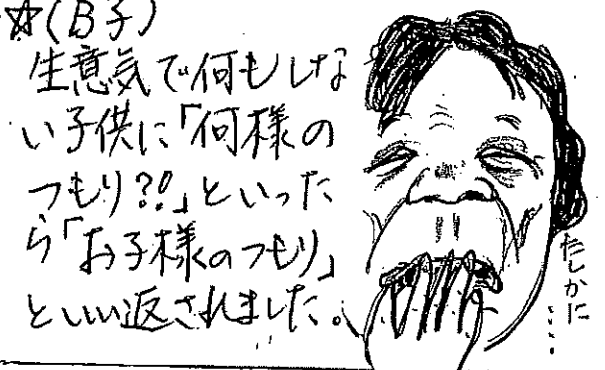 ☆(B子)
生意気で何もしな
い子供に「何様の
つもり?!」といった
ら「お子様のつもり」
といい返されました。
たしかに
……